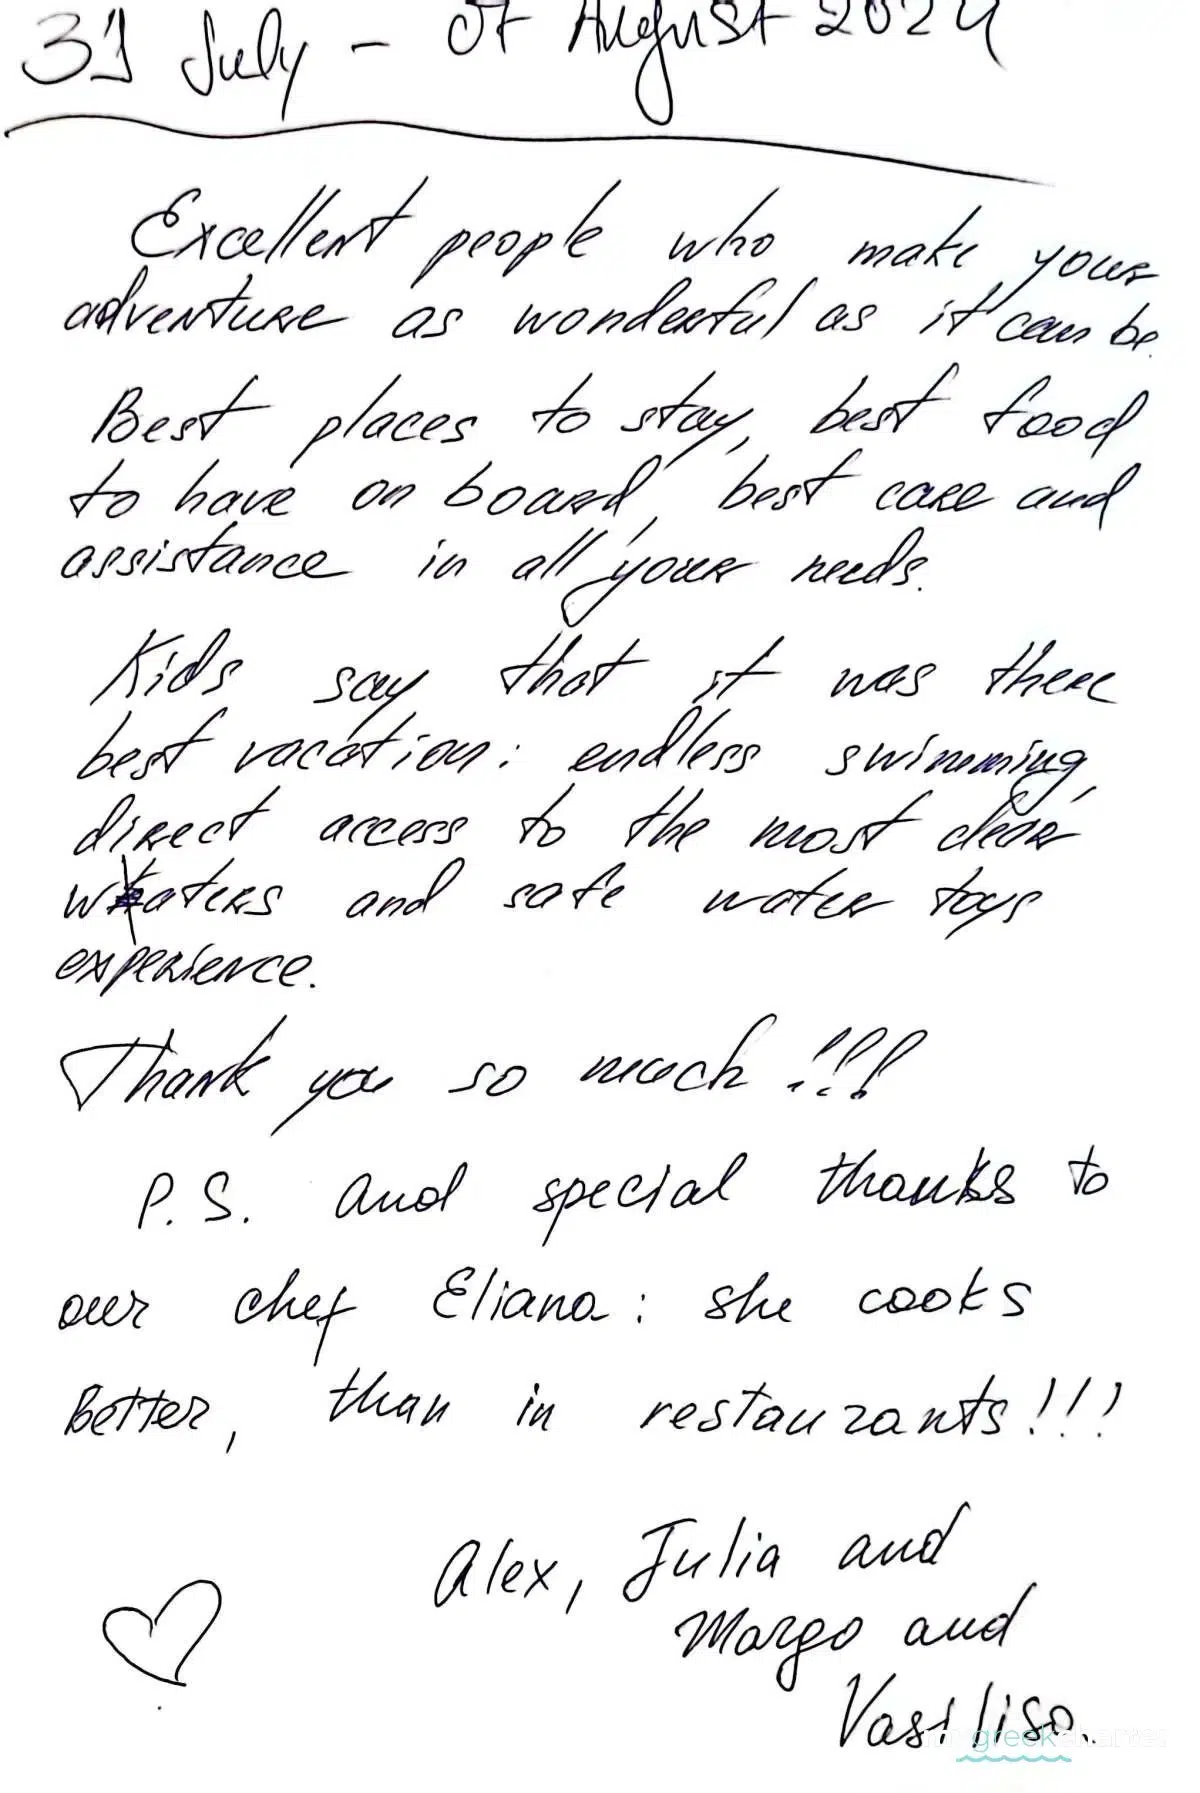 31 July - 07 August 2024
Excellent people who make your
adventure as wonderful as it can be.
Best places to stay, best food
to have on board, best care and
assistance in all your needs.
Kids say that it was there
best vacation: endless swimming,
direct access to the most clear
waters and safe water toys
experience.
Thank you so much!!!
P.S. and special thanks to
our chef Eliana: she cooks
Better, than in restaurants!!!
Alex, Julia and
Margo and
Vasilisa.
greekcharter